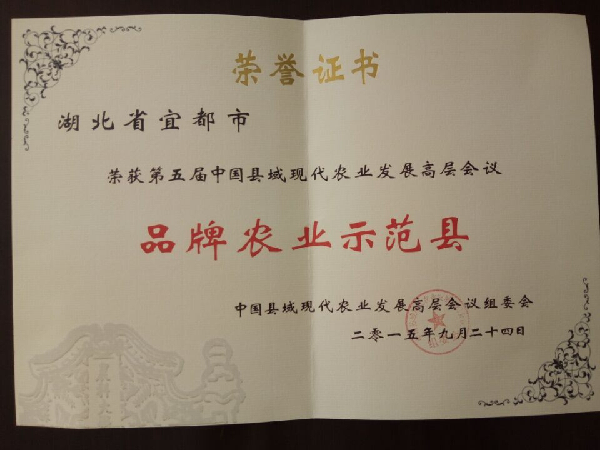 荣誉证书
湖北省宜都市
荣获第五届中国县域现代农业发展高层会议
品牌农业示范县
中国县域现代农业发展高层会议组委会
二零一五年九月二十四日